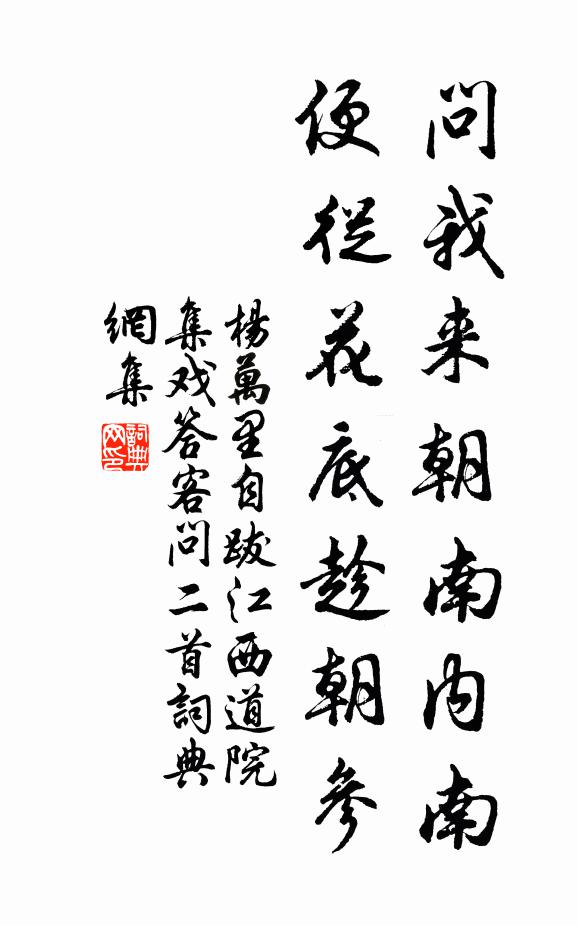 問我来朝南内南
便從花底趁朝參
楊萬里自跋江西道院
集戏答客問二首詞典
網集
詞典网印